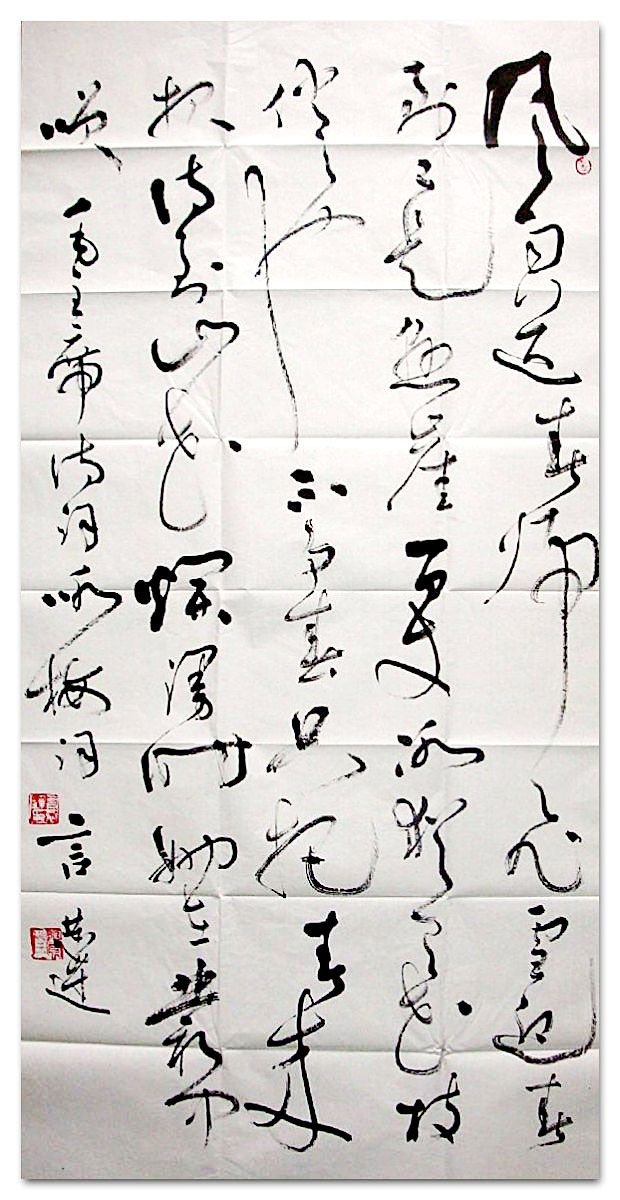 风雨送春归飞雪迎春
到已是悬崖百丈冰犹有花枝
俏俏也不争春只把春来
报待到山花爛漫时她在丛中
咲 毛主席诗词咏梅词 言